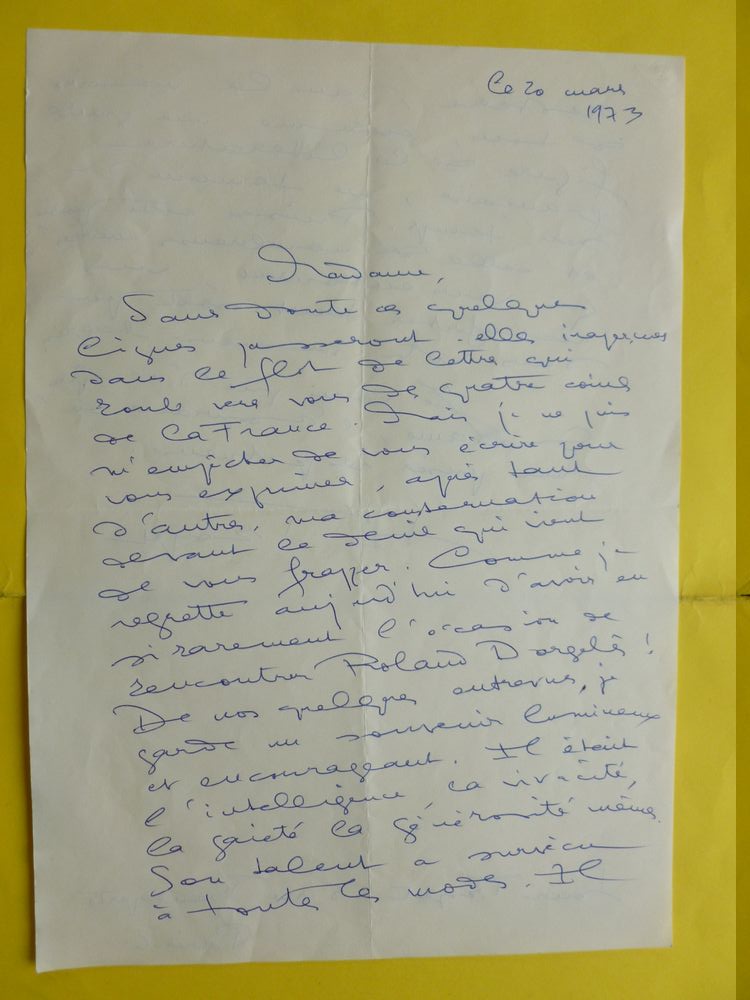 Le 20 mars
1973
Madame,
Sans doute ces quelques
lignes passeront-elles inaperçues
dans le flot de lettres qui
roule vers vous des quatre coins
de la France. Mais je ne puis
m'empêcher de vous écrire pour
vous exprimer, après tant
d'autres, ma consternation
devant le deuil qui vient
de vous frapper. Comme je
regrette aujourd'hui d'avoir eu
si rarement l'occasion de
rencontrer Roland Dorgelès !
De nos quelques entrevues, je
garde un souvenir lumineux
et encourageant. Il était
l'intelligence, la vivacité,
la gaieté la générosité mêmes.
Son talent a survécu
à toutes les modes. Il